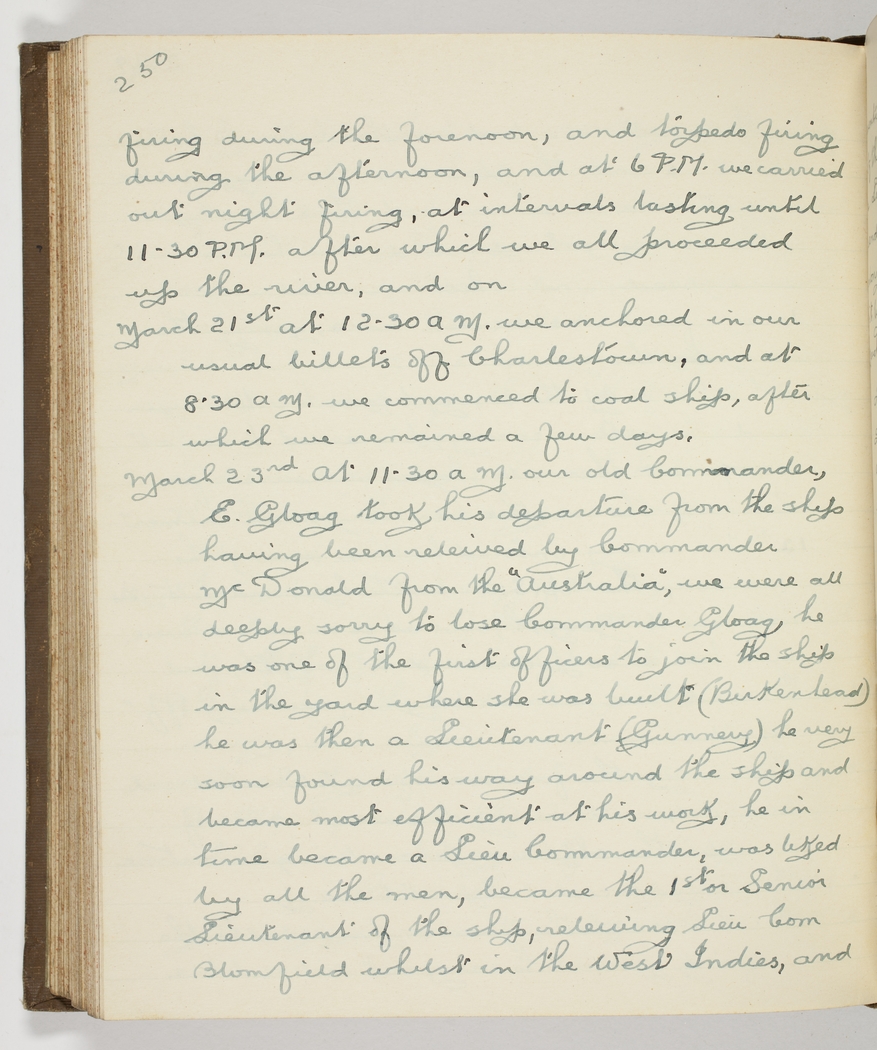 250
firing during the forenoon, and torpedo firing
during the afternoon, and at 6 P.M. we carried
out night firing, at intervals lasting until
11-30 P.M. after which we all proceeded
up the river, and on
March 21st at 12-30 a M. we anchored in our
usual billets off Charlestown, and at
8.30 a M. we commenced to coal ship, after
which we remained a few days.
March 23rd At 11-30 a M. our old Commander,
E. Gloag took his departure from the ship
having been releived by Commander
Mc Donald from the "Australia", we were all
deeply sorry to lose Commander Gloag, he
was one of the first officers to join the ship
in the yard where she was built (Birkenhead)
he was then a Lieutenant (Gunnery) he very
soon found his way around the ship and
became most efficient at his work, he in
time became a Lieu Commander, was liked
by all the men, became the 1st or Senior
Lieutenant of the ship, releiving Lieu Com
Blomfield whilst in the West Indies, and